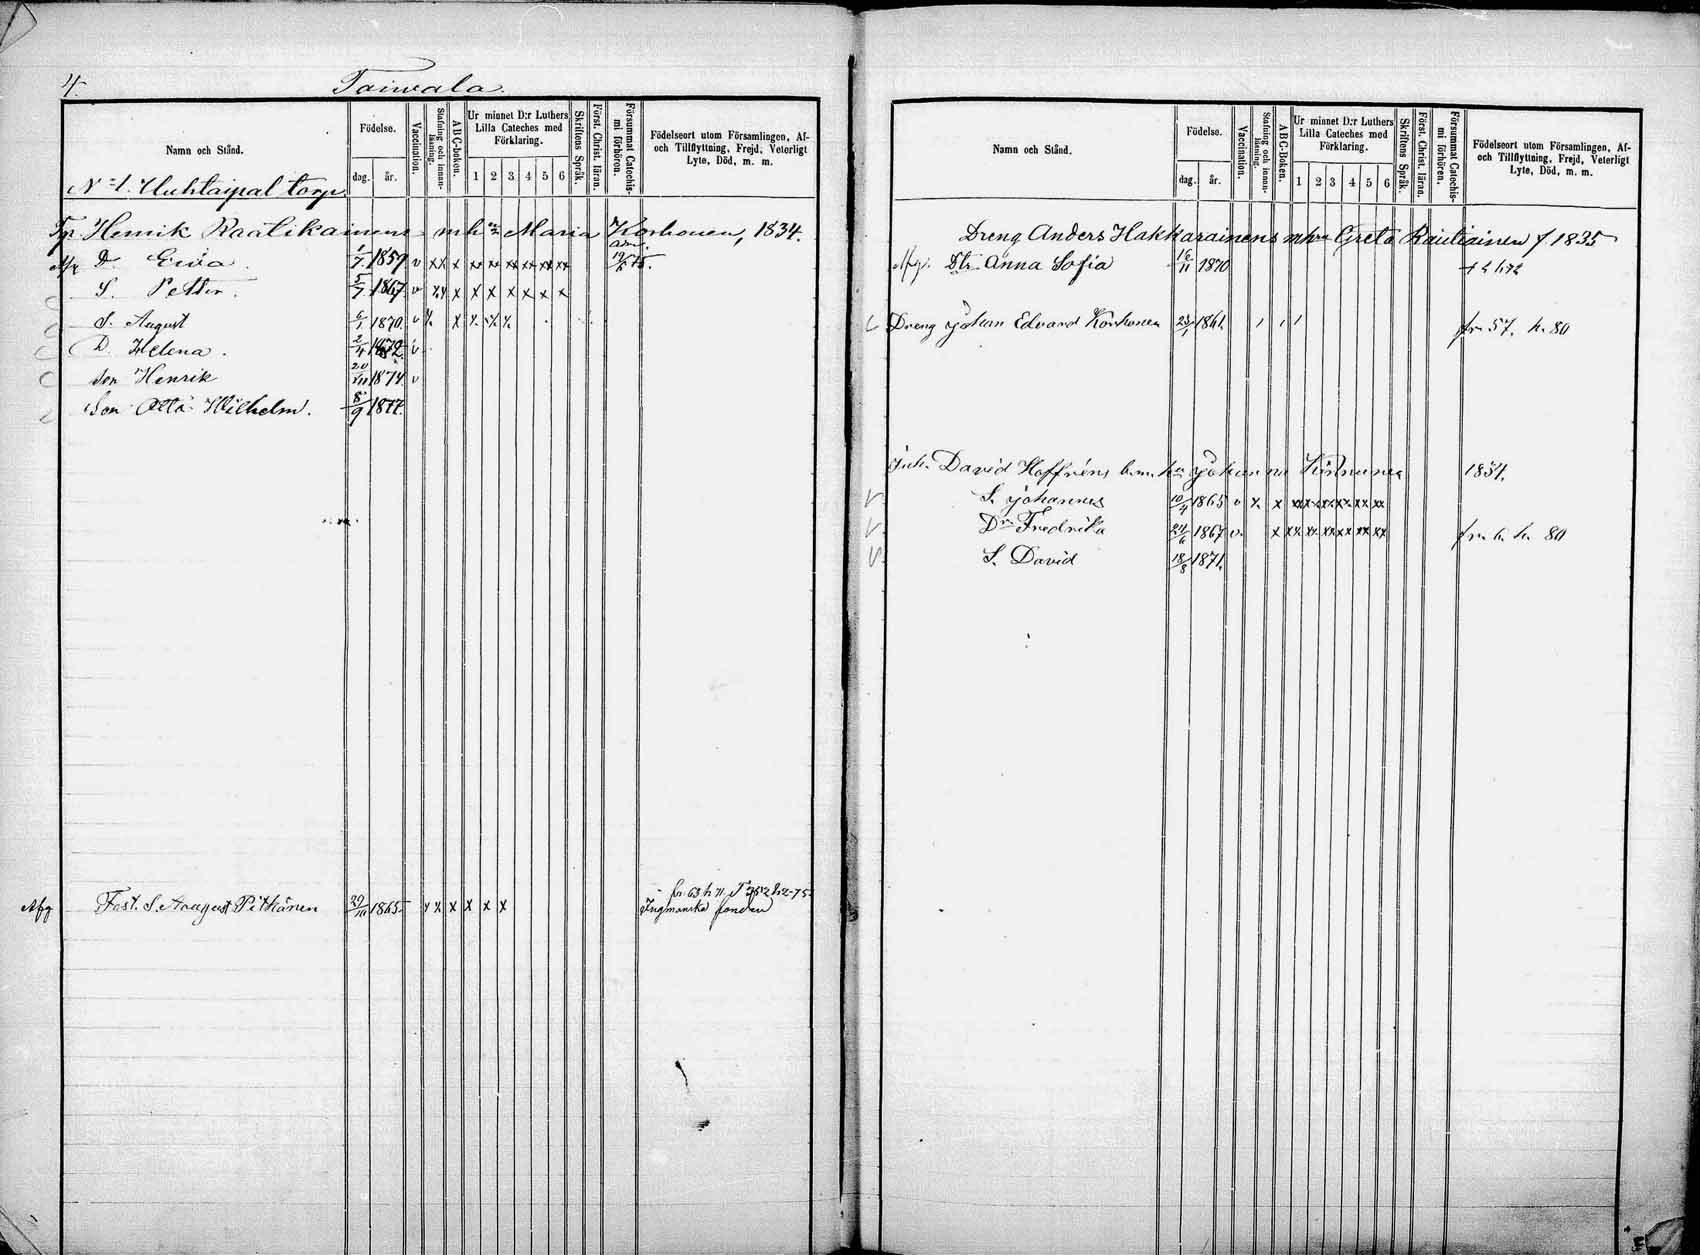 4.
Taivala.
Namn och Stånd.
Födelse.
dag. år.
Vaccination.
Stafning och innan-läsning.
ABC-boken.
Ur minnet D:r Luthers Lilla Cateches med Förklaring.
1 2 3 4 5 6
Skriftens Språk.
Först. Christ. läran.
Försummat Catechis-mi förhören.
Födelseort utom Församlingen, Af-
och Tillflyttning, Frejd, Veterligt
Lyte, Död, m. m.
N:o 1. Huhtaipal torp
Tp. Henrik Räätikainens mh Maria Korhonen, 1834.
D. Ewa. 1/7 1859 v xx x xx xx xx xx xx xx 19/6 75.
S. Petter. 5/7 1867 v xx x x x x x x x
S. August 6/1 1870. v x x x x
D. Helena. 2/4 1872. v
Son Henrik 20/11 1874 v
Son Otto Wilhelm. 8/9 1877
Afg Fost. S. August Pitkänen 29/10 1865 x x x x x x
fr. 63 h 71
Ingmanska fonden
Namn och Stånd.
Födelse.
dag. år.
Vaccination.
Stafning och innan-läsning.
ABC-Boken.
Ur minnet D:r Luthers Lilla Cateches med Förklaring.
1 2 3 4 5 6
Skriftens Språk.
Först. Christ. läran.
Försummat Catechis-mi förhören.
Födelseort utom Församlingen, Af-
och Tillflyttning, Frejd, Veterligt
Lyte, Död, m. m.
Dreng Anders Hakkarainens mhu Greta Rautiainen f 1835
Afg. Dtr. Anna Sofia 16/11 1870
Dreng Johan Edvard Korhonen 23/1 1861. fr. 57. h. 80
Inh. David Hoffréns Johanna 1834.
v S. Johannes 10/4 1865 v x x xx xx xx xx xx xx
v Dr Fredrika 24/6 1867 v. x xx xx xx xx xx xx fr. 6. h. 80
v. S. David 18/8 1871.